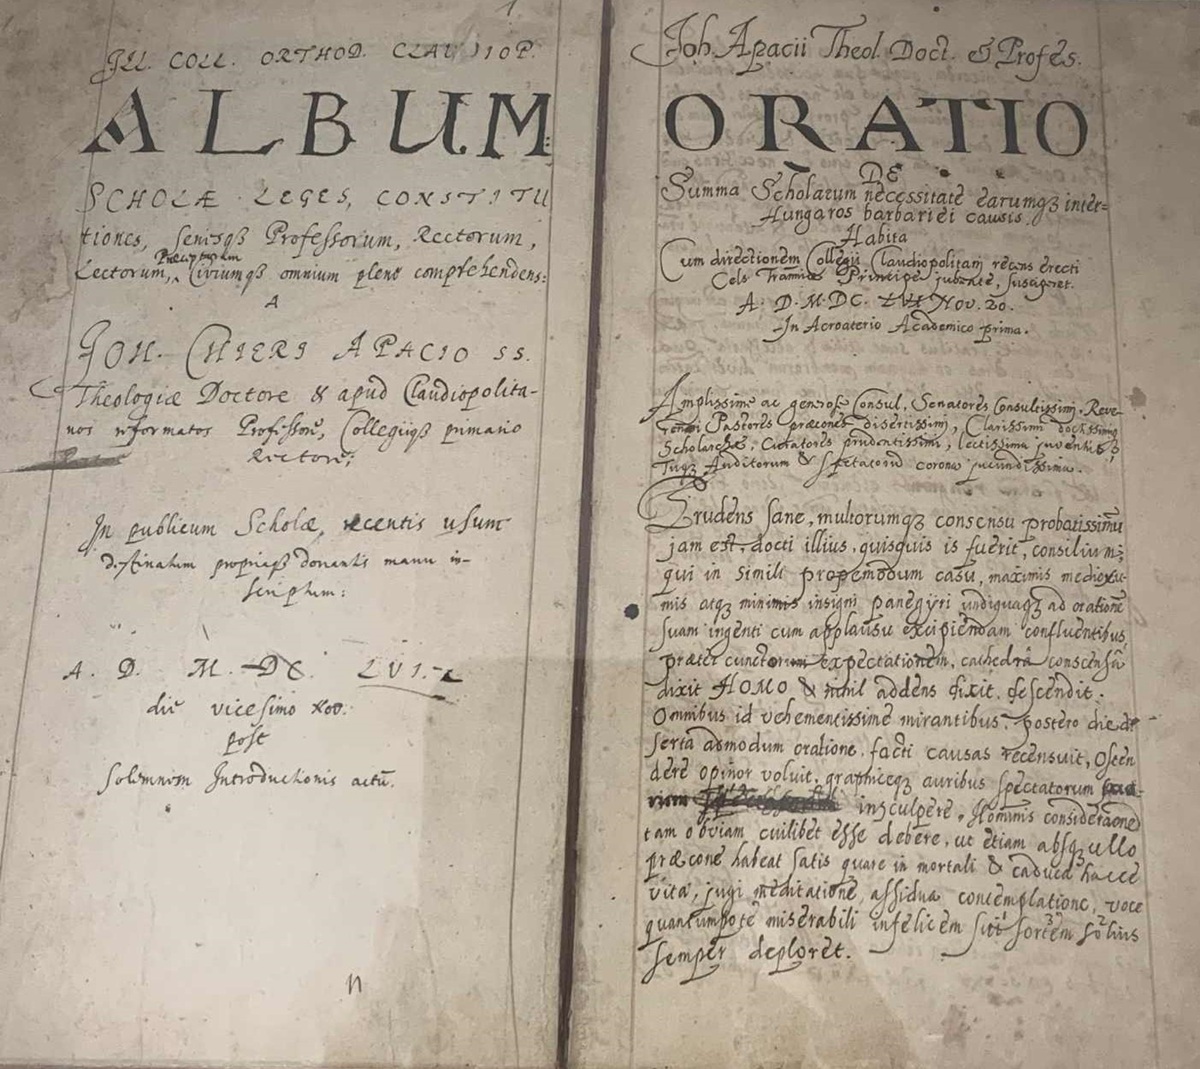 1
Ill. COLL. ORTHOD. CLAUDIOP.
ALBUM
SCHOLÆ LEGES, CONSTITU
tiones, seriesq3 Professorum, Rectorum,
Lectorum, Præceptorum Civiumq3 omnium plene comprehendens:
A
JOH. CHIERI APACIO SS.
Theologiæ Doctore & apud Claudiopolita-
nos reformatos Professore, Collegiiq3 primario
Rectore;
In publicum Scholæ, recentis usum
destinatum propriaq3 donantis manu in-
scriptum:
A. D. M. DC. LVI.
die vicesimo Nov.
post
solemnem Introductionis actū.
Joh. Apacii Theol. Doct. & Profes.
ORATIO
DE
Summa Scholarum necessitate earumq3 inter=
Hungaros barbariei causis.
Habita
Cum directionem Collegii Claudiopolitani recens erecti
Cels. Principe jubente, susciperet.
A. D. M. DC. LVI Nov. 20.
In Acroaterio Academico prima.
Amplissime ac generose Consul, Senatores Consultissimi, Reve-
rendi Pastores præcones disertissimi, Clarissimi doctissimiq3
Scholarchæ, Curatores prudentissimi, lectissima juventus,
Tuq3 Auditorum & spectatorū corona jucundissima.
Prudens sane, multorumq3 consensu probatissimū
jam est, docti illius, quisquis is fuerit, consilium;
qui in simili propemodum casu, maximis medioxu-
mis atq3 minimis insigni panegÿri undiquaq3 ad orationē
suam ingenti cum applausu excipiendam confluentibus,
præter cunctorum expectationem, cathedrā conscensā
dixit HOMO & nihil addens dixit, descendit.
Omnibus id vehementissime mirantibus, postero die di-
serta admodum oratione, facti causas recensuit, Osten
dere opinor voluit, graphiceq3 auribus spectatorum
insculpere, Hominis considerationē
tam obviam cuilibet esse debere, ut etiam absq3 ullo
præcone habeat satis quare in mortali & caduca hacce
vita, jugi meditatione, assidua contemplatione, voce
quantumpote miserabili infelicem sortem
semper deploret.
n